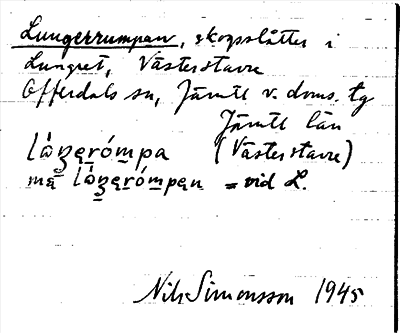 Lungerrumpan, skogsslåtter i
Lungret, Västerstavre
Offerdals sn, Jämtl v. doms. tg
Jämtl län
lὼŋęrómpa (Västerstavre)
mą lὼŋęrómpęn = vid L.
Nils Simonsson 1945